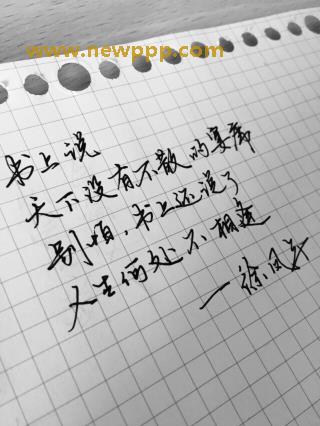 www.newppp.com
书上说
天下没有不散的宴席
别怕，书上还说了
人生何处不相逢
—徐凤年